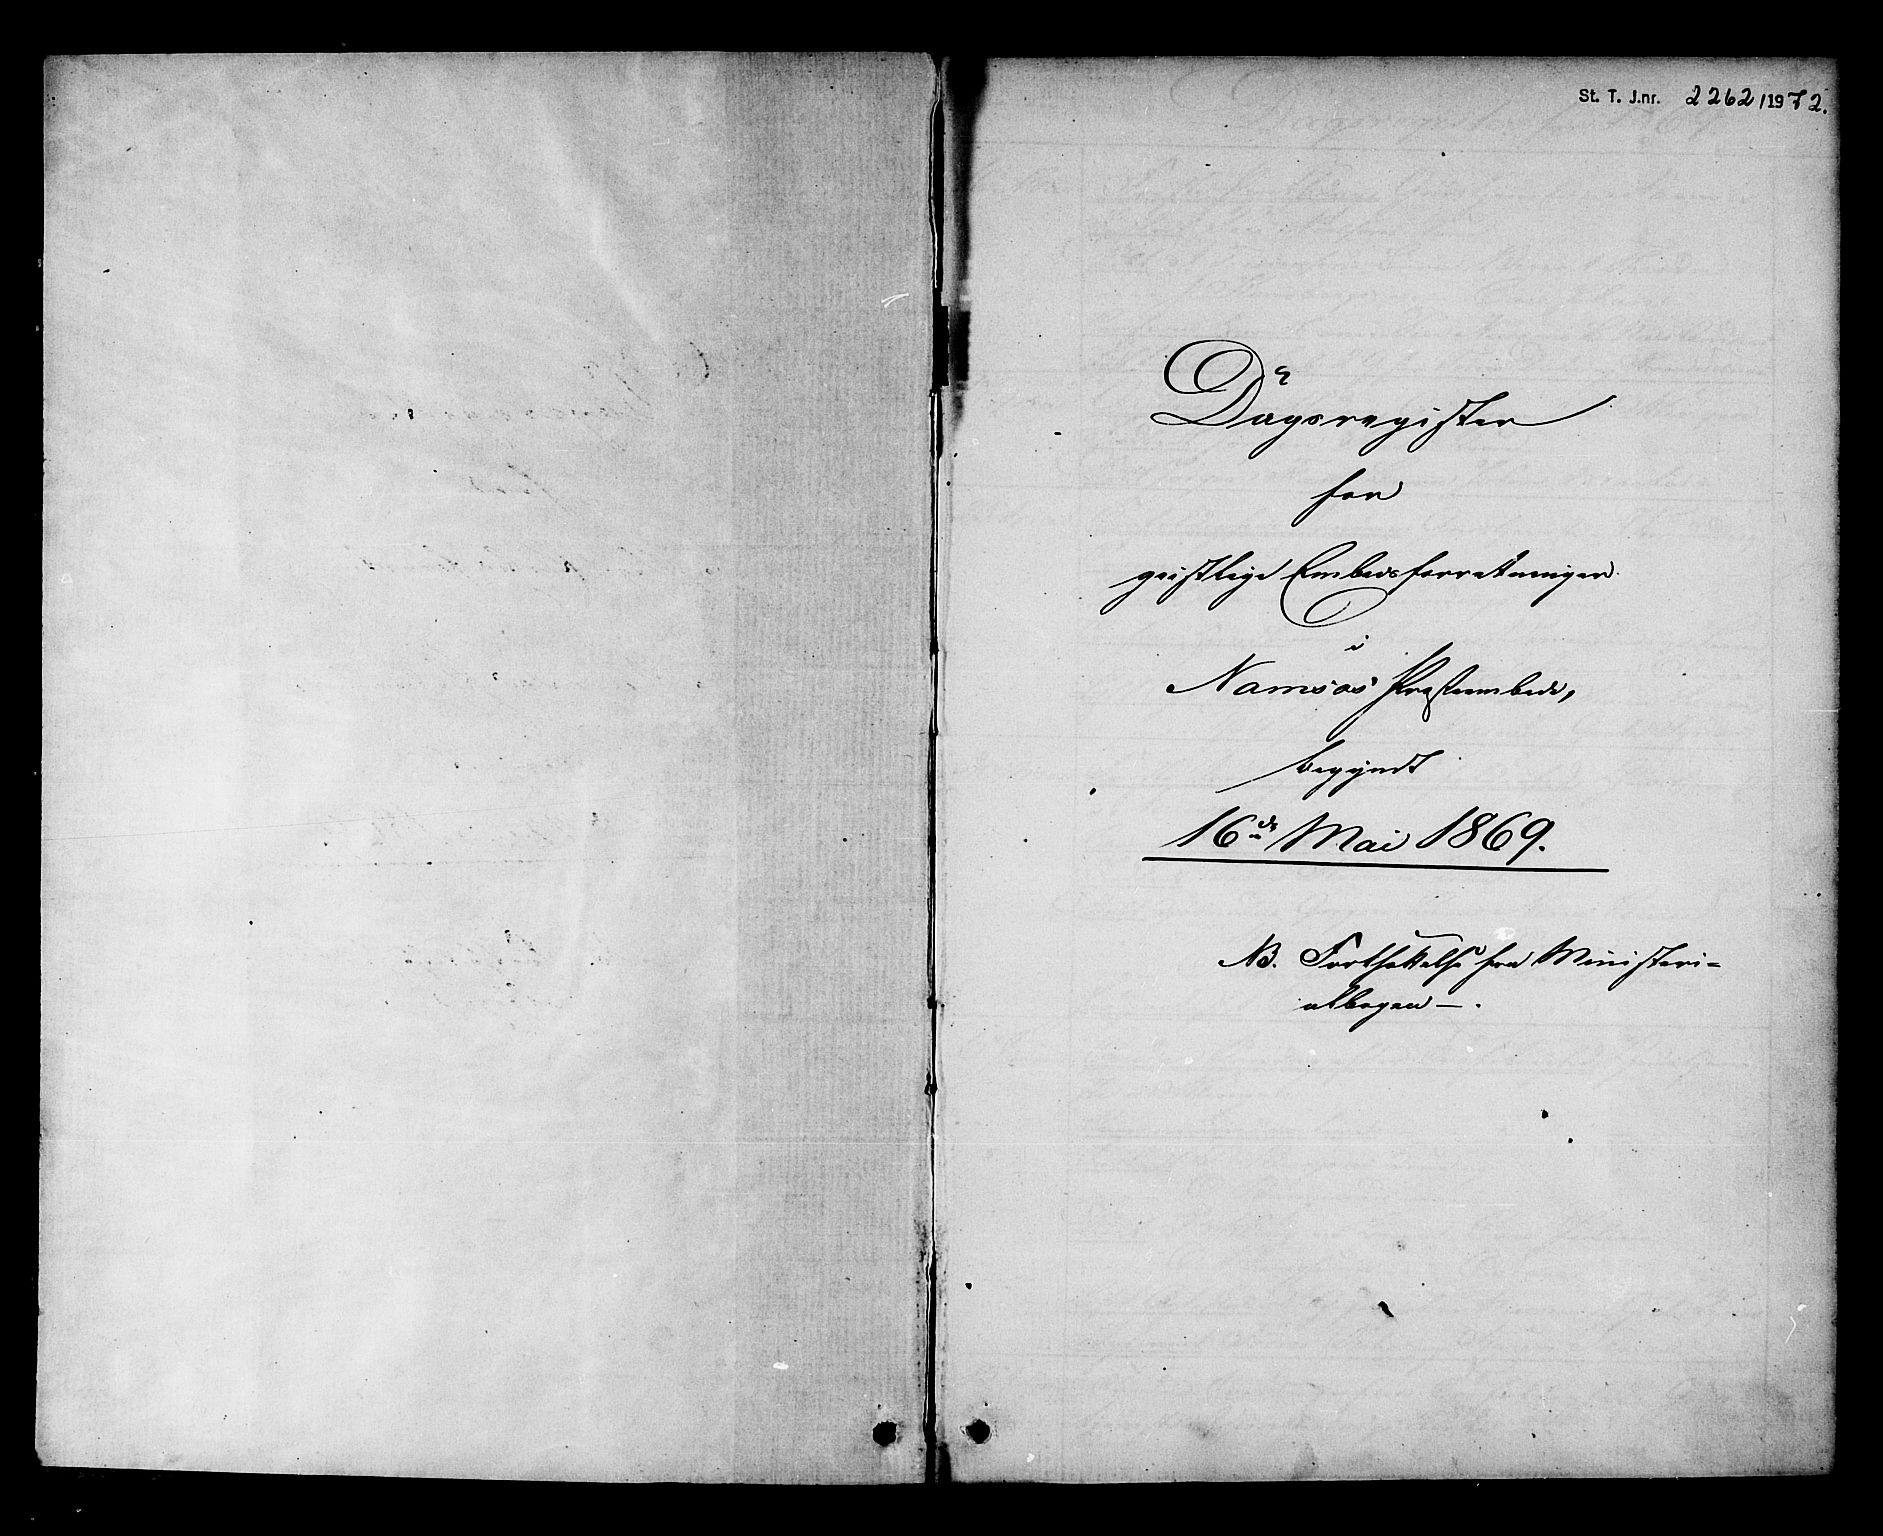 St. T. J.nr. 2262/1972.
Dagsregister
for
geistlige Embedsforretninger
i
Namsos Præsteembede,
begyndt
16de Mai 1869.
NB. Fortsættelse fra Ministeri-
albogen —.